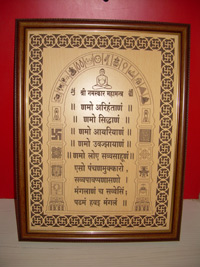 श्री नमस्कार महामन्त्र
णमो अरिहंताणं
॥ णमो सिद्धाणं ॥
॥ णमो आयरियाणं ॥
॥ णमो उवज्झायाणं ॥
॥ णमो लोए सव्वसाहूणं ॥
एसो पंचणमुक्कारो
सव्वपावप्पणासणो
मंगलाणं च सव्वेसिं
पढमं हवइ मंगलं ॥